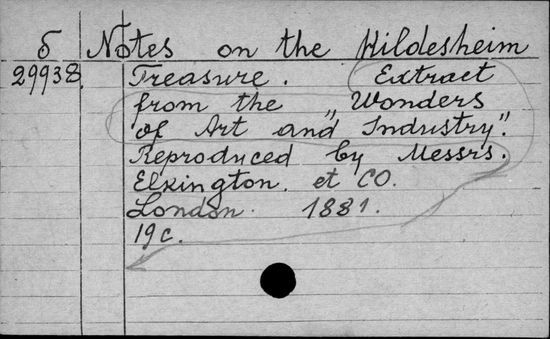 б Notes on the Hildesheim
29938. Treasure. Extract
from the „Wonders
of Art and Industry".
Reproduced by Messrs.
Elkington. et CO.
London. 1881.
19 c.